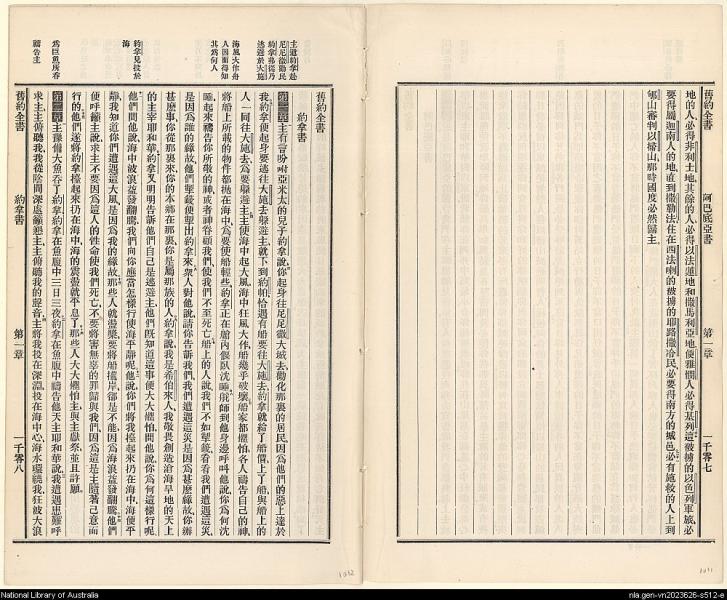 阿巴底亞書
第一章
一千零七
地的人、必得非利士地、其餘的人必得以法蓮地和撒馬利亞地、便雅憫人必得基列、這被擄的以色列軍旅、必
要得屬迦南人的地直到撒勒法、住在西法喇的被擄的耶路撒冷民、必要得南方的城邑、必有施救的人上到
郇山審判以掃山、那時國度必然歸主、
舊約全書
約拿書
主有言吩咐亞米太的兒子約拿說、你起身往尼尼微大城去、勸化那裏的居民、因為他們的惡上達於
我、約拿便起身要逃往大施去躲避主、就下到約帕、恰遇有船要往大施去、約拿就給了船價、上了船與船上的
人一同往大施去、為要躲避主、主使海中起大風、海中狂風大作、船幾乎破壞、船家都懼怕、各人禱告自己的神、
將船上所載的物件都拋在海中、為要使船輕些、約拿正在艙內偃臥沈睡、
睡、起來禱告你所敬的神、或者神眷顧我們、使我們不至死亡、船上的人說、我們不如掣籤看看我們遭遇這災
是因為誰的緣故、他們掣籤便掣出約拿來、眾人對他說、請你告訴我們、我們遭遇這災是因為甚麼緣故、你辦
甚麼事、你從那裏來、你的本鄉在那裏、你是屬那族的人、約拿說、我是希伯來人、我敬畏創造滄海旱地的天上
的主宰耶和華、約拿又明明告訴他們自己是逃避主、他們既知道這事、便大大懼怕、問他說、你為何這樣行呢、
他們問他說、海中波浪益發翻騰、我們向你應當怎樣行、使海平靜呢、他說、你們將我擡起來扔在海中、海便平
靜、我知道你們遭遇這大風是因為我的緣故、那些人就盪槳要將船攏岸、卻是不能、因為海浪益發翻騰、他們
便呼籲主說、求主不要因為這人的性命使我們死亡、不要將害無辜的罪歸與我們、因為這是主隨著己意而
行的、他們遂將約拿擡起來扔在海中、海的震盪就平息了、那些人大大懼怕主、與主獻祭、並且許願、
第二章
主豫備大魚吞了約拿、約拿在魚腹中三日三夜、約拿在魚腹中禱告他天主耶和華、說、我遭遇患難呼
求主、主俯聽我、我從陰間深處籲懇主、主俯聽我的聲音、主將我投在深淵、投在海中心、海水環繞我、狂波大浪
舊約全書
約拿書
第一章
一千零八
主遣約拿赴
尼尼微勸民
約拿弗從乃
逃避於大施
海風大作舟
人因而得知
其為何人
約拿見投於
海
為巨魚所吞
禱告主
National Library of Australia
nla.gen-vn2023626-s512-e